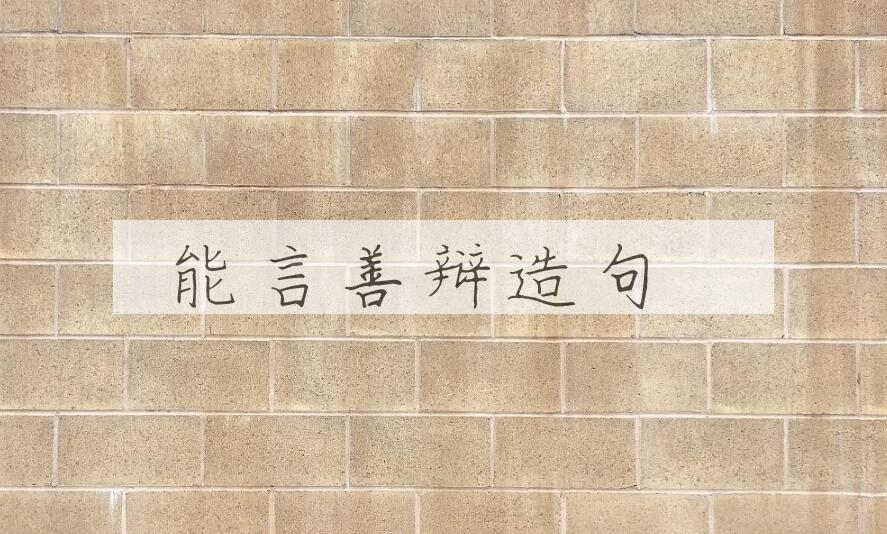 能言善辩造句